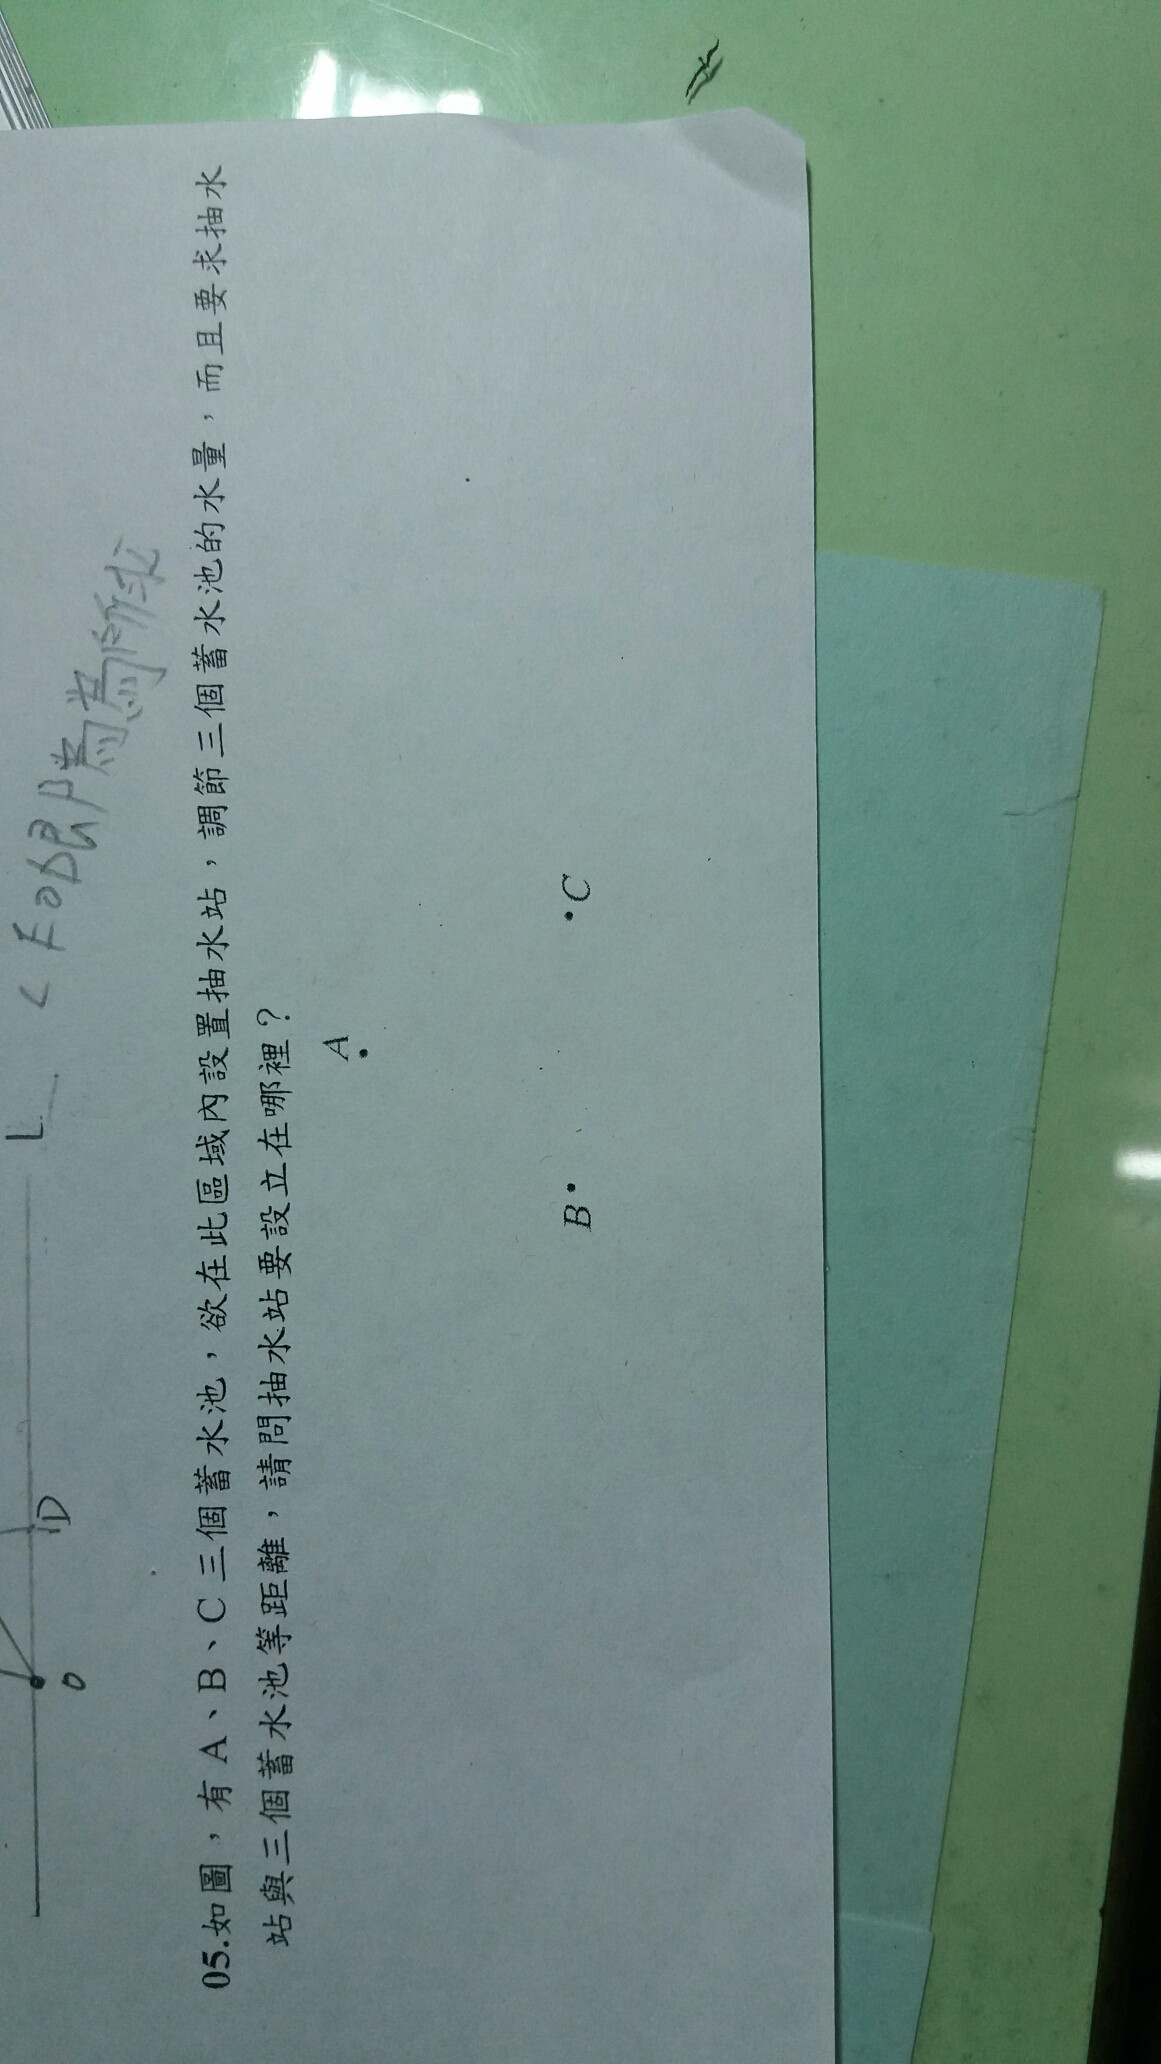 L
O
D
< EOD即為所求
05.如圖，有 A、B、C 三個蓄水池，欲在此區域內設置抽水站，調節三個蓄水池的水量，而且要求抽水
站與三個蓄水池等距離，請問抽水站要設立在哪裡？
A
B
C